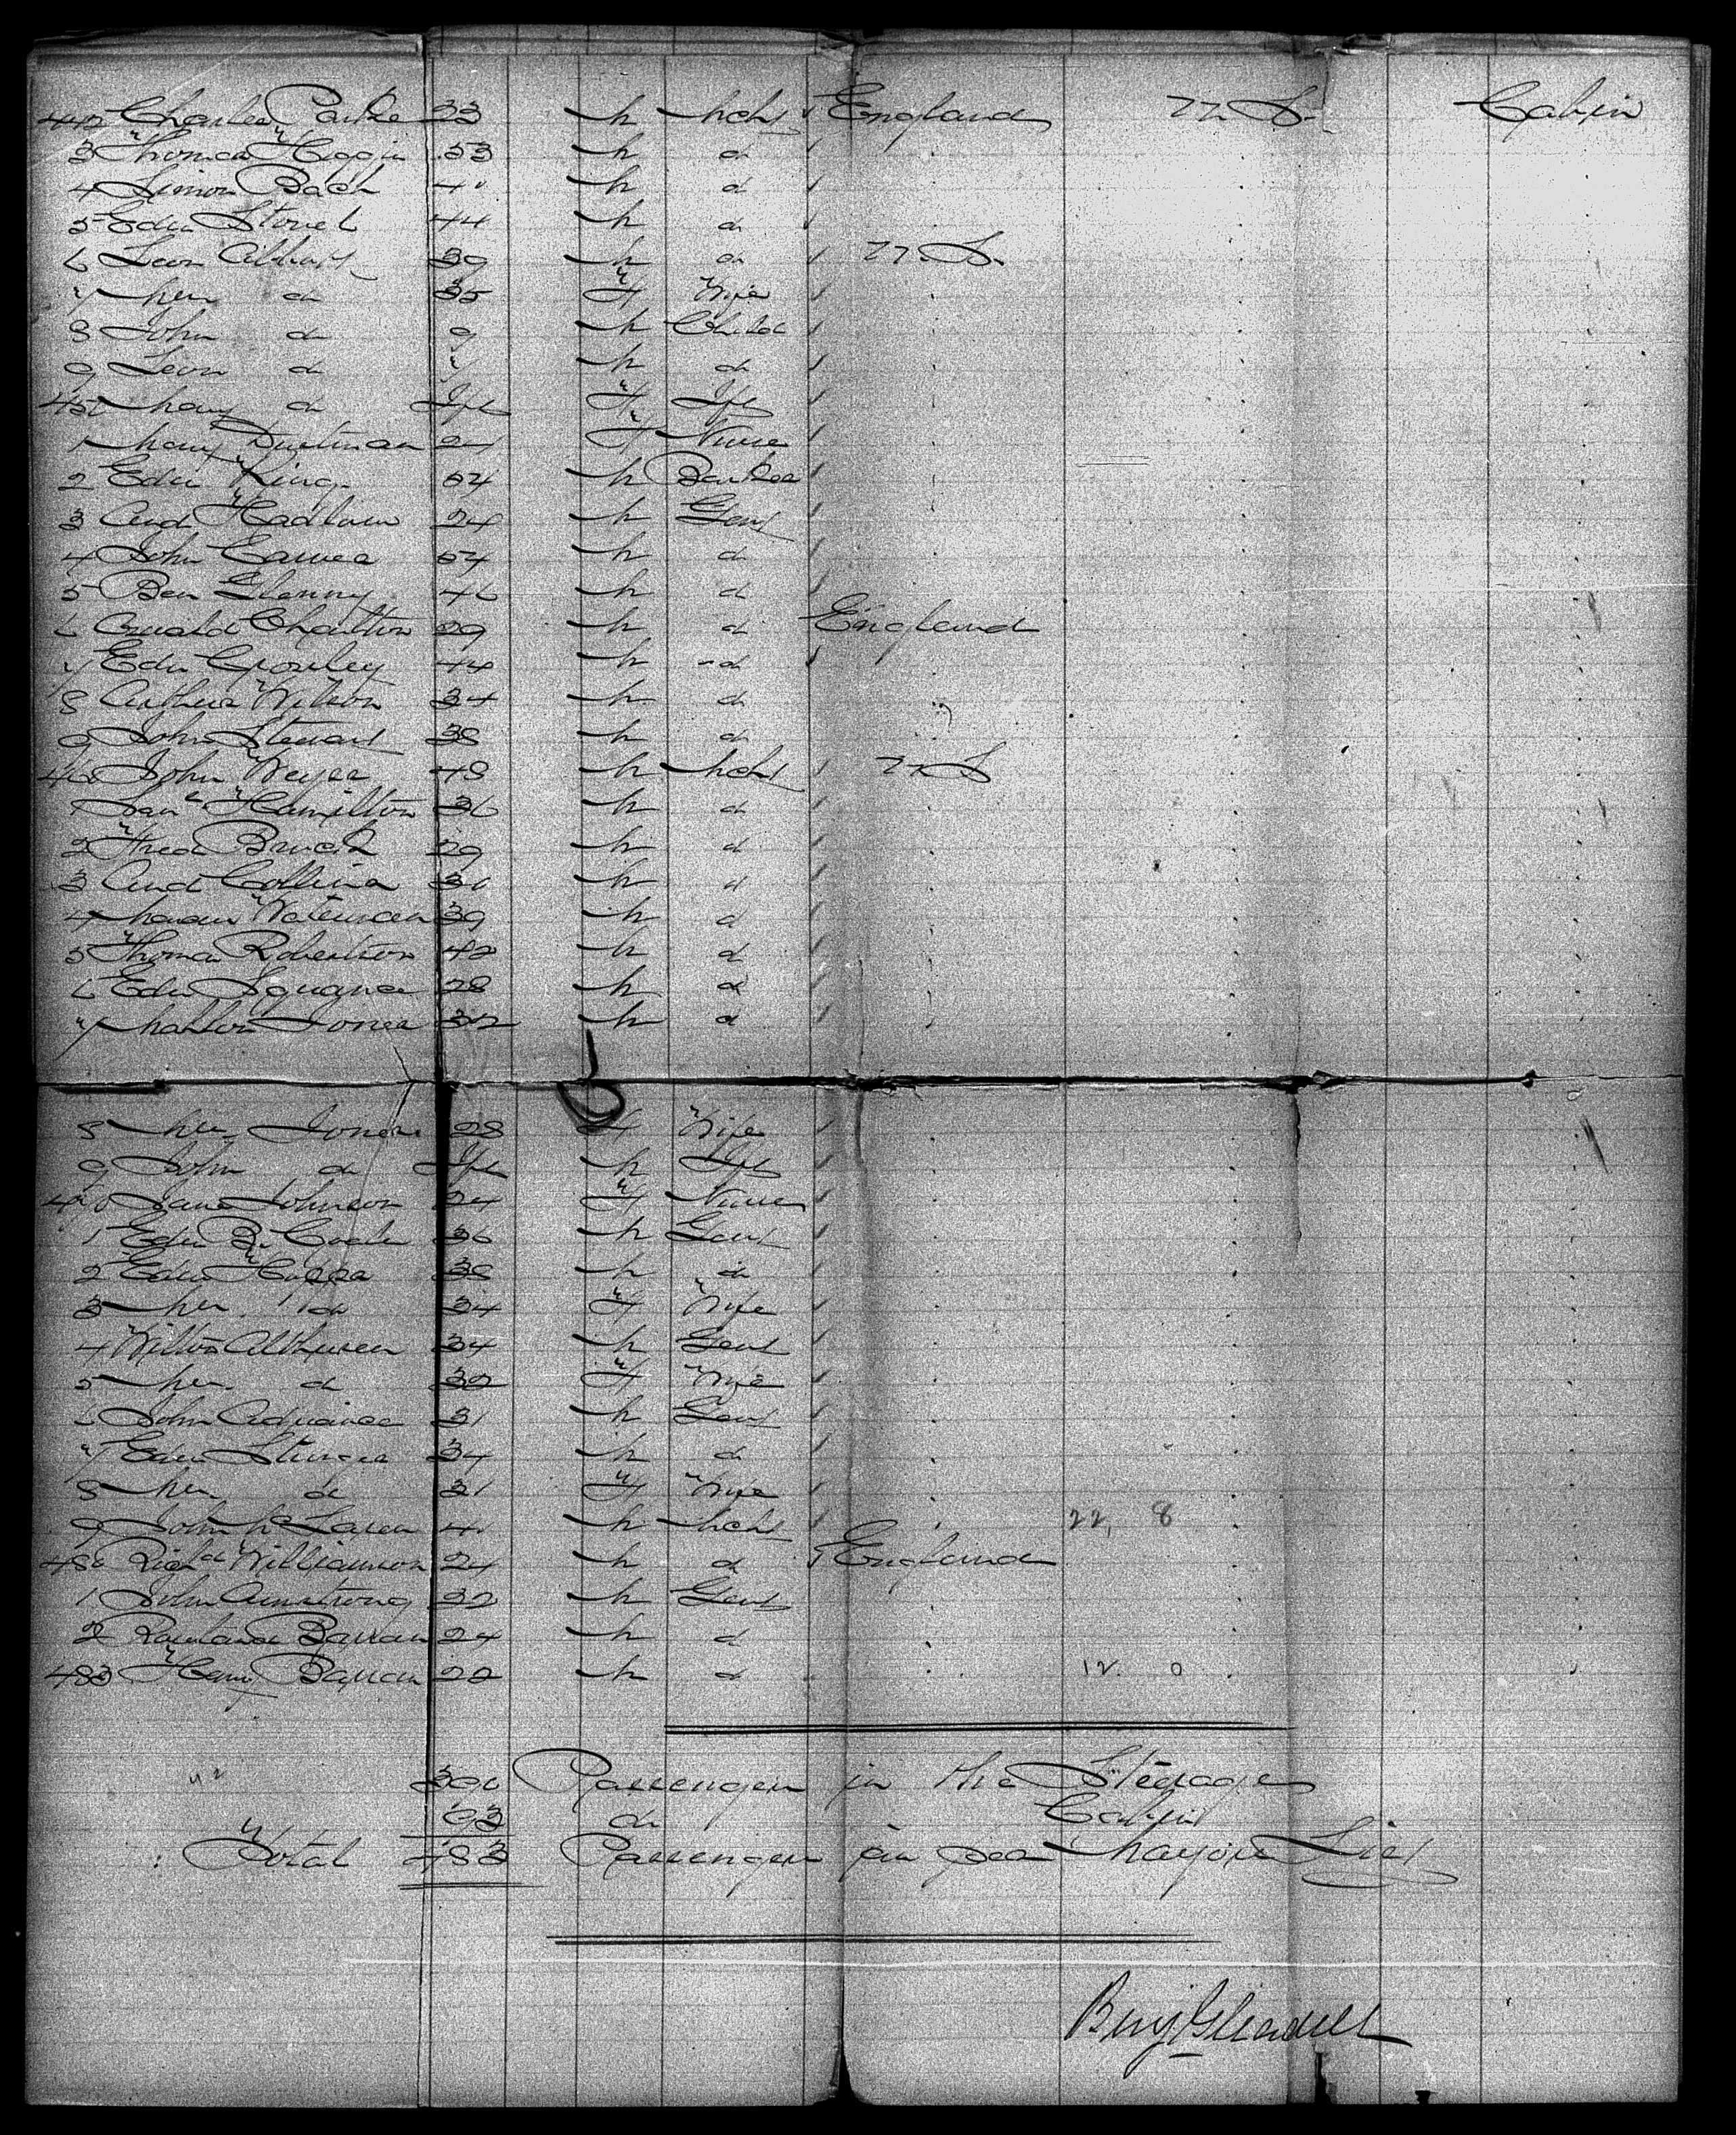 442 Charles Parke 33 M Mcht England U.S. Cabin
3 Thomas Higgin 53 M do
4 Simon Bach 40 M do
5 Edw Stone 44 M do
6 Leon Abbott 39 M do U.S.
7 Mrs do 35 F Wife
8 John do 9 M Child
9 Leon do 7 M do
450 Mary do Inft F Inft
1 Mary 24 F Nurse
2 Edw King 54 M Banker
3 And 24 M Gent
4 John Eames 54 M do
5 Ben Glenny 46 M do
6 Oswald Charlton 29 M do England
7 Edw Crowley 44 M do
8 Arthur Wilson 34 M do
9 John Stewart 38 M do
460 John Weyer 48 M Mcht U.S
1 Saml Hamilton 36 M do
2 Fred 29 M do
3 And Collins 30 M do
4 Waterman 39 M do
5 Thomas Robertson 42 M do
6 Edw Squance 28 M do
7 Jones 32 M do
8 Mrs Jones 28 F Wife
9 John do Inft M Inft
470 Jane Johnson 24 F Nurse
1 Edw R. 36 M Gent
2 Edw 38 M do
3 Mrs do 34 F Wife
4 34 M Gent
5 Mrs do 32 F Wife
6 John Adriance 31 M Gent
7 Edw Sturges 34 M do
8 Mrs do 31 F Wife
9 John McLaren 40 M Mcht 22, 8
480 Richd Williamson 24 M do England
1 John Armstrong 32 M Gent
2 Rowland Barran 24 M do
483 Henry Barran 22 M do 12. 0
390 Passengers in the Steerage
93 do Cabin
Total 483 Passengers as per Major List
Benj Gleadell